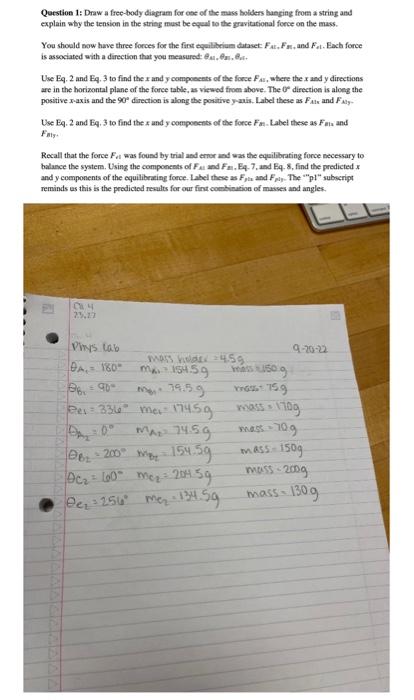 Question 1: Draw a free-body diagram for one of the mass holders hanging from a string and
explain why the tension in the string must be equal to the gravitational force on the mass.
You should now have three forces for the first equilibrium dataset: FA1, FB1, and Fe1. Each force
is associated with a direction that you measured: θA1, θB1, θe1.
Use Eq. 2 and Eq. 3 to find the x and y components of the force FA1, where the x and y directions
are in the horizontal plane of the force table, as viewed from above. The 0° direction is along the
positive x-axis and the 90° direction is along the positive y-axis. Label these as FA1x and FA1y.
Use Eq. 2 and Eq. 3 to find the x and y components of the force FB1. Label these as FB1x and
FB1y.
Recall that the force Fe1 was found by trial and error and was the equilibrating force necessary to
balance the system. Using the components of FA1 and FB1, Eq. 7, and Eq. 8, find the predicted x
and y components of the equilibrating force. Label these as Fp1x and Fp1y. The "p1" subscript
reminds us this is the predicted results for our first combination of masses and angles.
Phys lab 9-20-22
mass holder = 4.5g
θA1 = 180° mA1 = 154.5g mass = 150g
θB1 = 90° mB1 = 79.5g mass = 75g
θe1 = 336° me1 = 174.5g mass = 170g
θA2 = 0° mA2 = 74.5g mass = 70g
θB2 = 200° mB2 = 154.5g mass = 150g
θC2 = 60° mC2 = 204.5g mass = 200g
θe2 = 256° me2 = 134.5g mass = 130g